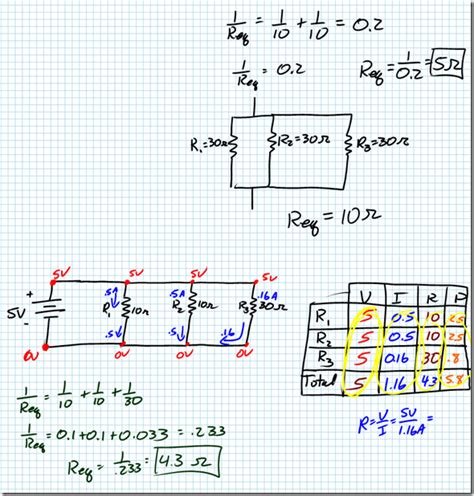 1/Req = 1/10 + 1/10 = 0.2
1/Req = 0.2
Req = 1/0.2 = 5Ω
R1=30Ω
R2=30Ω
R3=30Ω
Req = 10Ω
5V 5V 5V 5V
.5A .5A .16A
5V + -
R1 10Ω
R2 10Ω
R3 30Ω
.5 .5 .16
0V 0V 0V 0V
V I R P
R1 5 0.5 10 2.5
R2 5 0.5 10 2.5
R3 5 0.16 30 .8
Total 5 1.16 4.3 5.8
R = V/I = 5V/1.16A =
1/Req = 1/10 + 1/10 + 1/30
1/Req = 0.1+0.1+0.033 = .233
Req = 1/.233 = 4.3 Ω